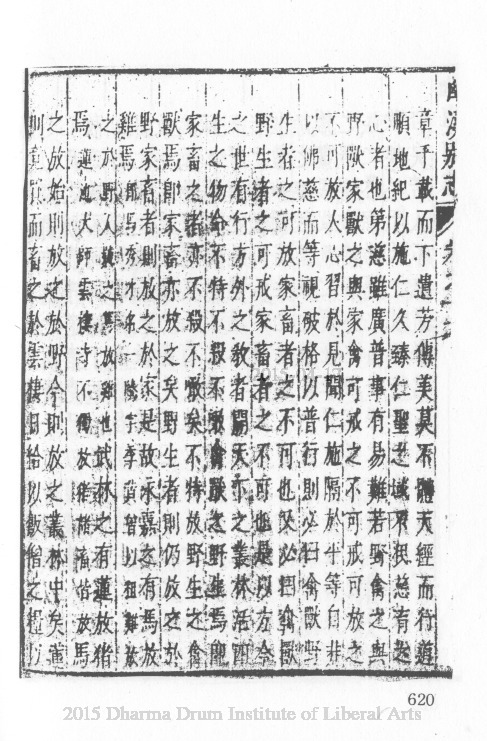 章乎載而下遺芳傳美莫不體天經而行道
順地紀以施仁久臻仁聖之域不根慈有忽
心者也第慈雖廣普事有易難若野禽之與
野獸家獸之與家禽可戒之不可戒可放之
不可放人心習於見聞仁施隔於平等自非
以佛慈而等視破格以普行則必曰禽獸野
生者之可放家畜者之不可也又必曰禽獸
野生者之可戒家畜者之不可也是以方今
之世有行方外之教者開天下之叢林活
生之物命不特不殺不殺禽獸之野生焉即
家畜之者亦不殺不殺矣不特放野生之禽
獸焉即家畜亦放之矣野生者則仍放之於
野家畜者則放之於家是故永嘉之有馬放
雞焉郎馬秀才名一李以放
之於野人之雞也武林之有蓮放猪
焉蓮池大師雲棲寺不獨放猪猶放馬
之放始則放之於野今則放之叢林中矣
則而畜之於雲棲日給以飯僧之
620
2015 Dharma Drum Institute of Liberal Arts